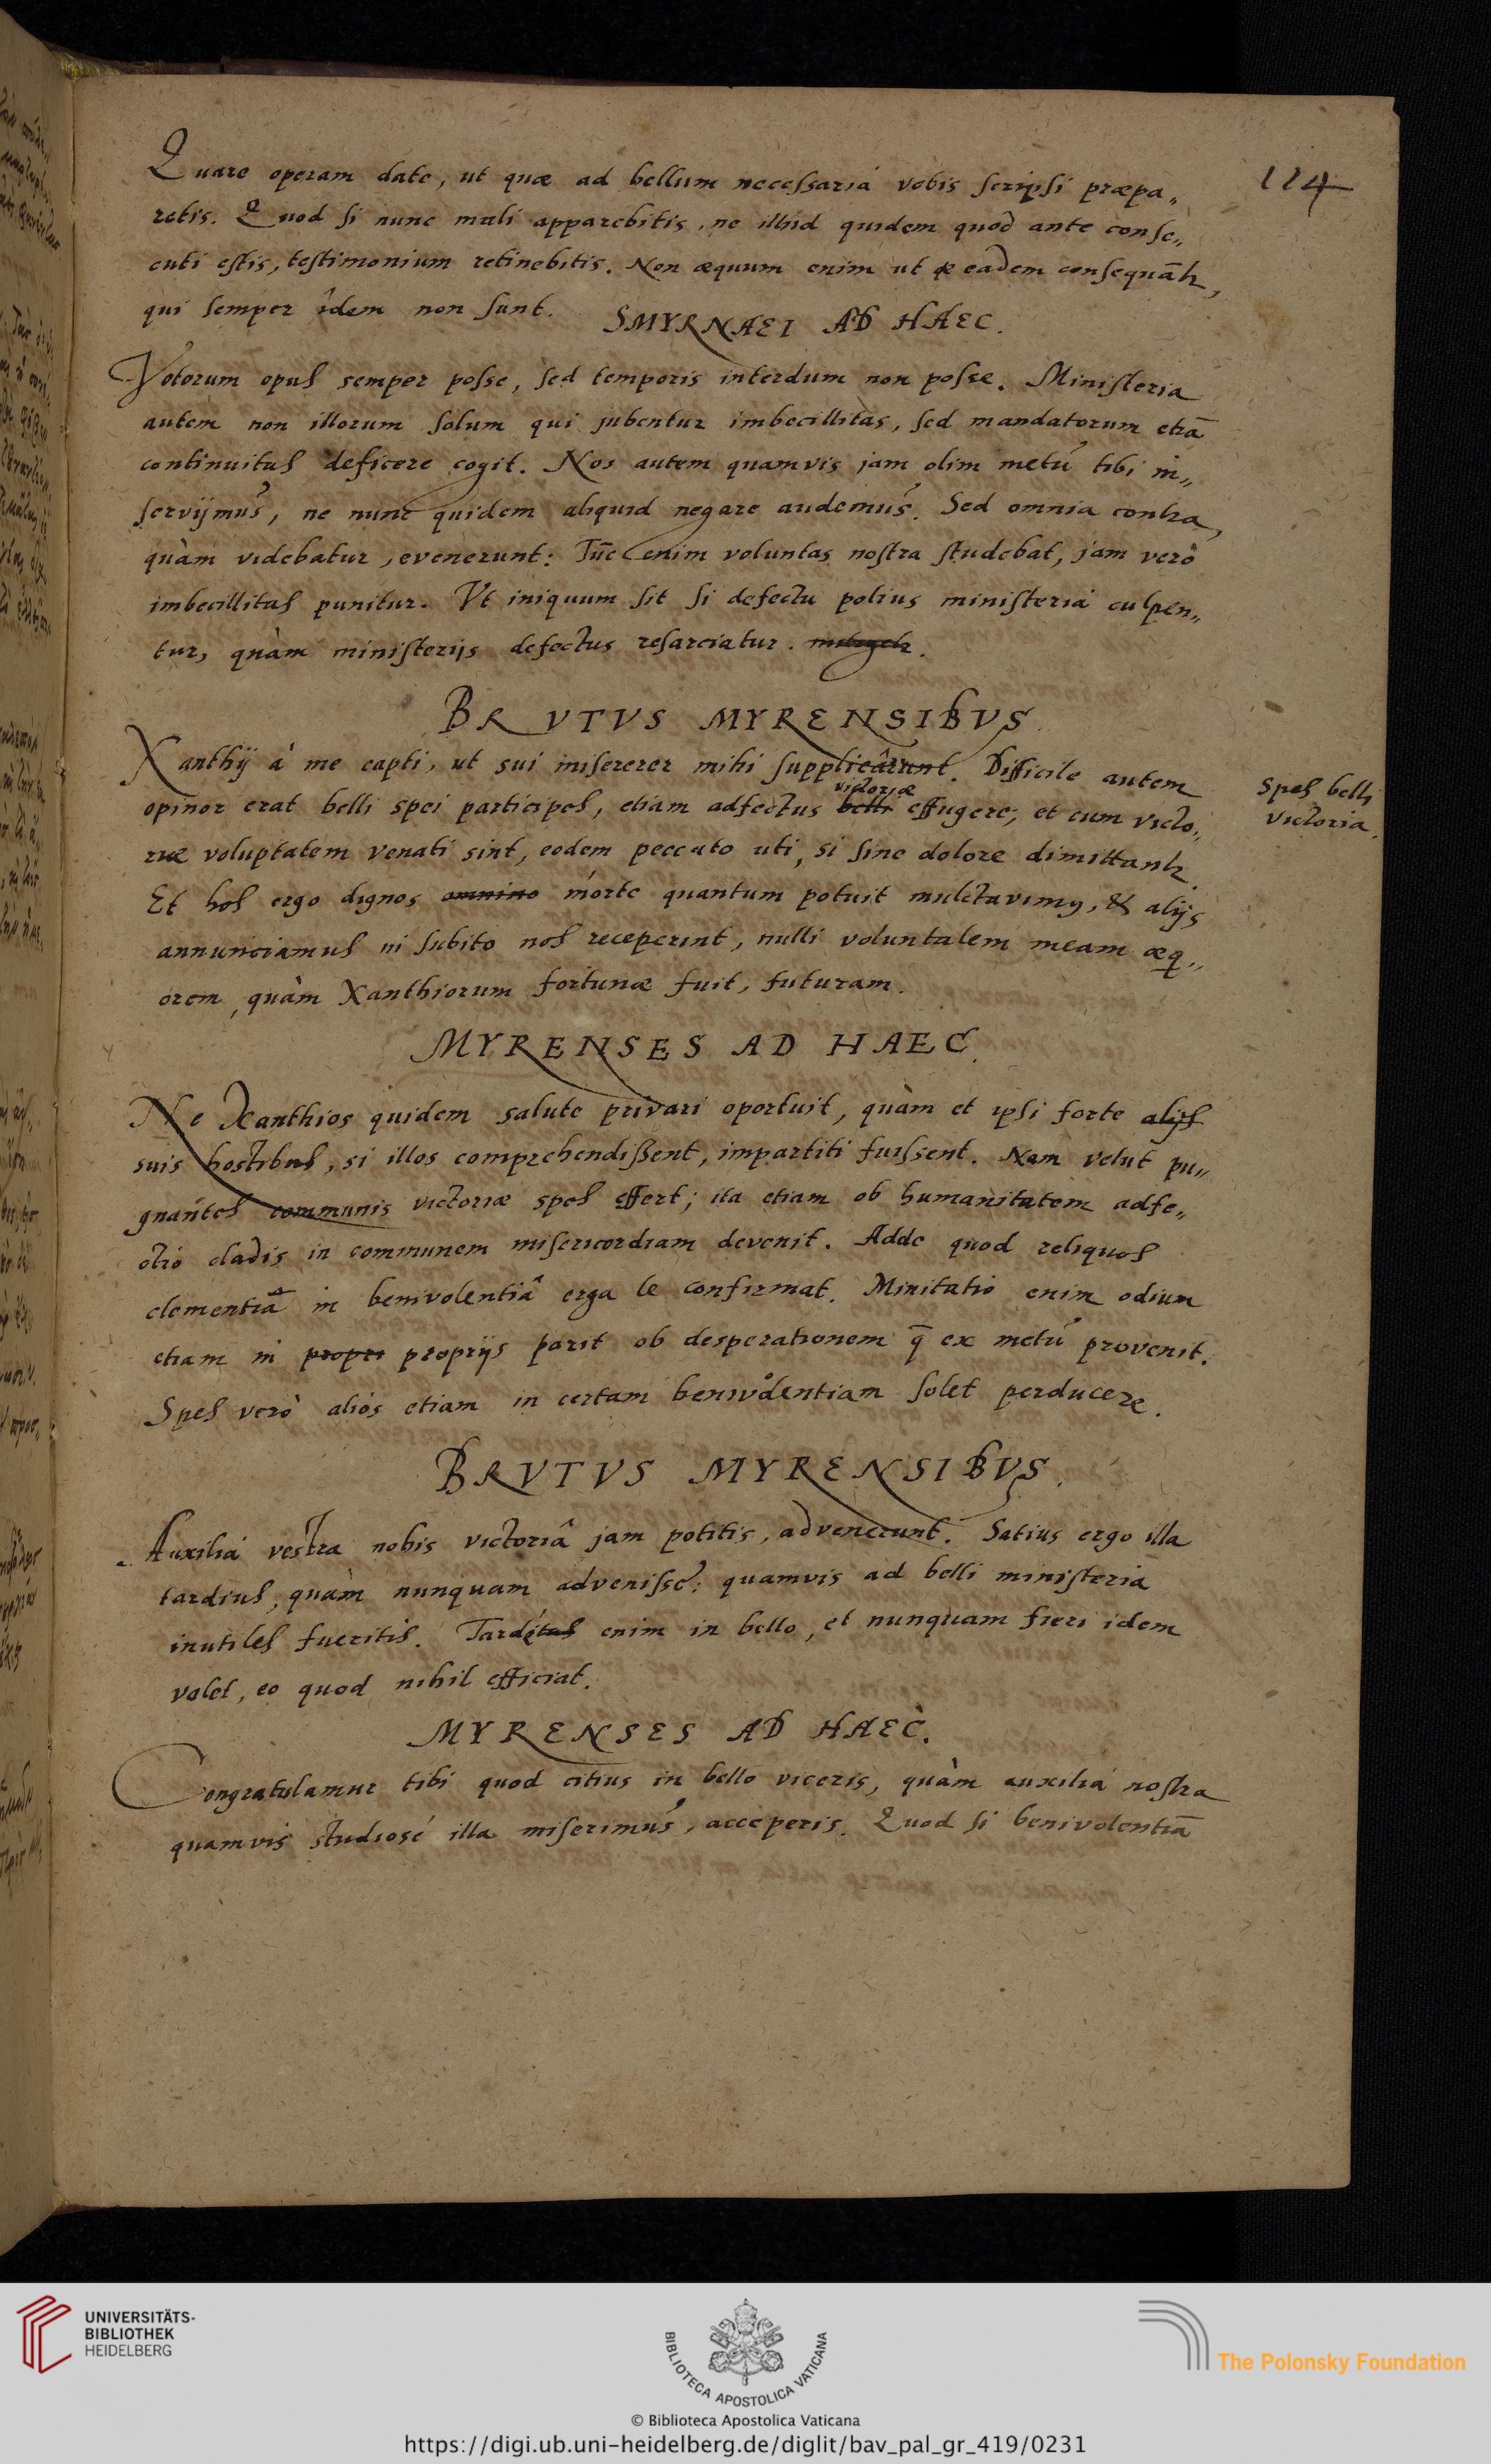 114
Quare operam date, ut quæ ad bellum necessaria vobis scripsi præpa„
retis. Quod si nunc mali apparebitis, ne illud quidem quod ante conse„
cuti estis, testimonium retinebitis. Non æquum enim ut eadem consequātr,
qui semper îdem non sunt.
SMYRNAEI AD HAEC.
Votorum opus semper posse, sed temporis interdum non posse. Ministeria
autem non illorum solum qui jubentur imbecillitas, sed mandatorum etiā
continuitas deficere cogit. Nos autem quamvis jam olim metu tibi in„
servijmus, ne nunc quidem aliquid negare audemus. Sed omnia contra,
quàm videbatur, evenerunt: Tūc enim voluntas nostra studebat, jam verò
imbecillitas punitur. Vt iniquum sit si defectu potius ministeria culpen„
tur, quàm ministerijs defectus resarciatur.
BRVTVS MYRENSIBVS
Xanthij à me capti, ut sui misererer mihi supplicârunt. Difficile autem
opinor erat belli spei participes, etiam adfectus belli victoriæ effugere; et cum victo„
riæ voluptatem venati sint, eodem peccato uti, si sine dolore dimittantr.
Spes belli
victoria.
Et hos ergo dignos omnino morte quantum potuit mulctavimus, & alijs
annunciamus ni subito nos receperint, nulli voluntatem meam æq„
orem, quàm Xanthiorum fortunæ fuit, futuram.
MYRENSES AD HAEC.
Ne Xanthios quidem salute privari oportuit, quàm et ipsi forte alijs
suis hostibus, si illos comprehendissent, impartiti fuissent. Nam velut pu„
gnantes communis victoriæ spes effert; ita etiam ob humanitatem adfe„
ctio cladis in communem misericordiam devenit. Adde quod reliquos
clementiâ in benivolentiâ erga te confirmat. Minitatio enim odium
etiam in propri propijs parit ob desperationem q̄ ex metu provenit.
Spes verò aliós etiam in certam benivolentiam solet perducere.
BRVTVS MYRENSIBVS.
Auxilia vestra nobis victoriâ jam potitis, advenerunt. Satius ergo illa
tardius, quàm nunquam advenisse: quamvis ad belli ministeria
inutiles fueritis. Tarditas enim in bello, et nunquam fieri idem
valet, eo quod nihil efficiat.
MYRENSES AD HAEC.
Congratulamur tibi quod citius in bello viceris, quàm auxilia nostra
quamvis studiosé illa miserimus, acceperis. Quod si benivolentiā
UNIVERSITÄTS-
BIBLIOTHEK
HEIDELBERG
BIBLIOTECA APOSTOLICA VATICANA
The Polonsky Foundation
© Biblioteca Apostolica Vaticana
https://digi.ub.uni-heidelberg.de/diglit/bav_pal_gr_419/0231